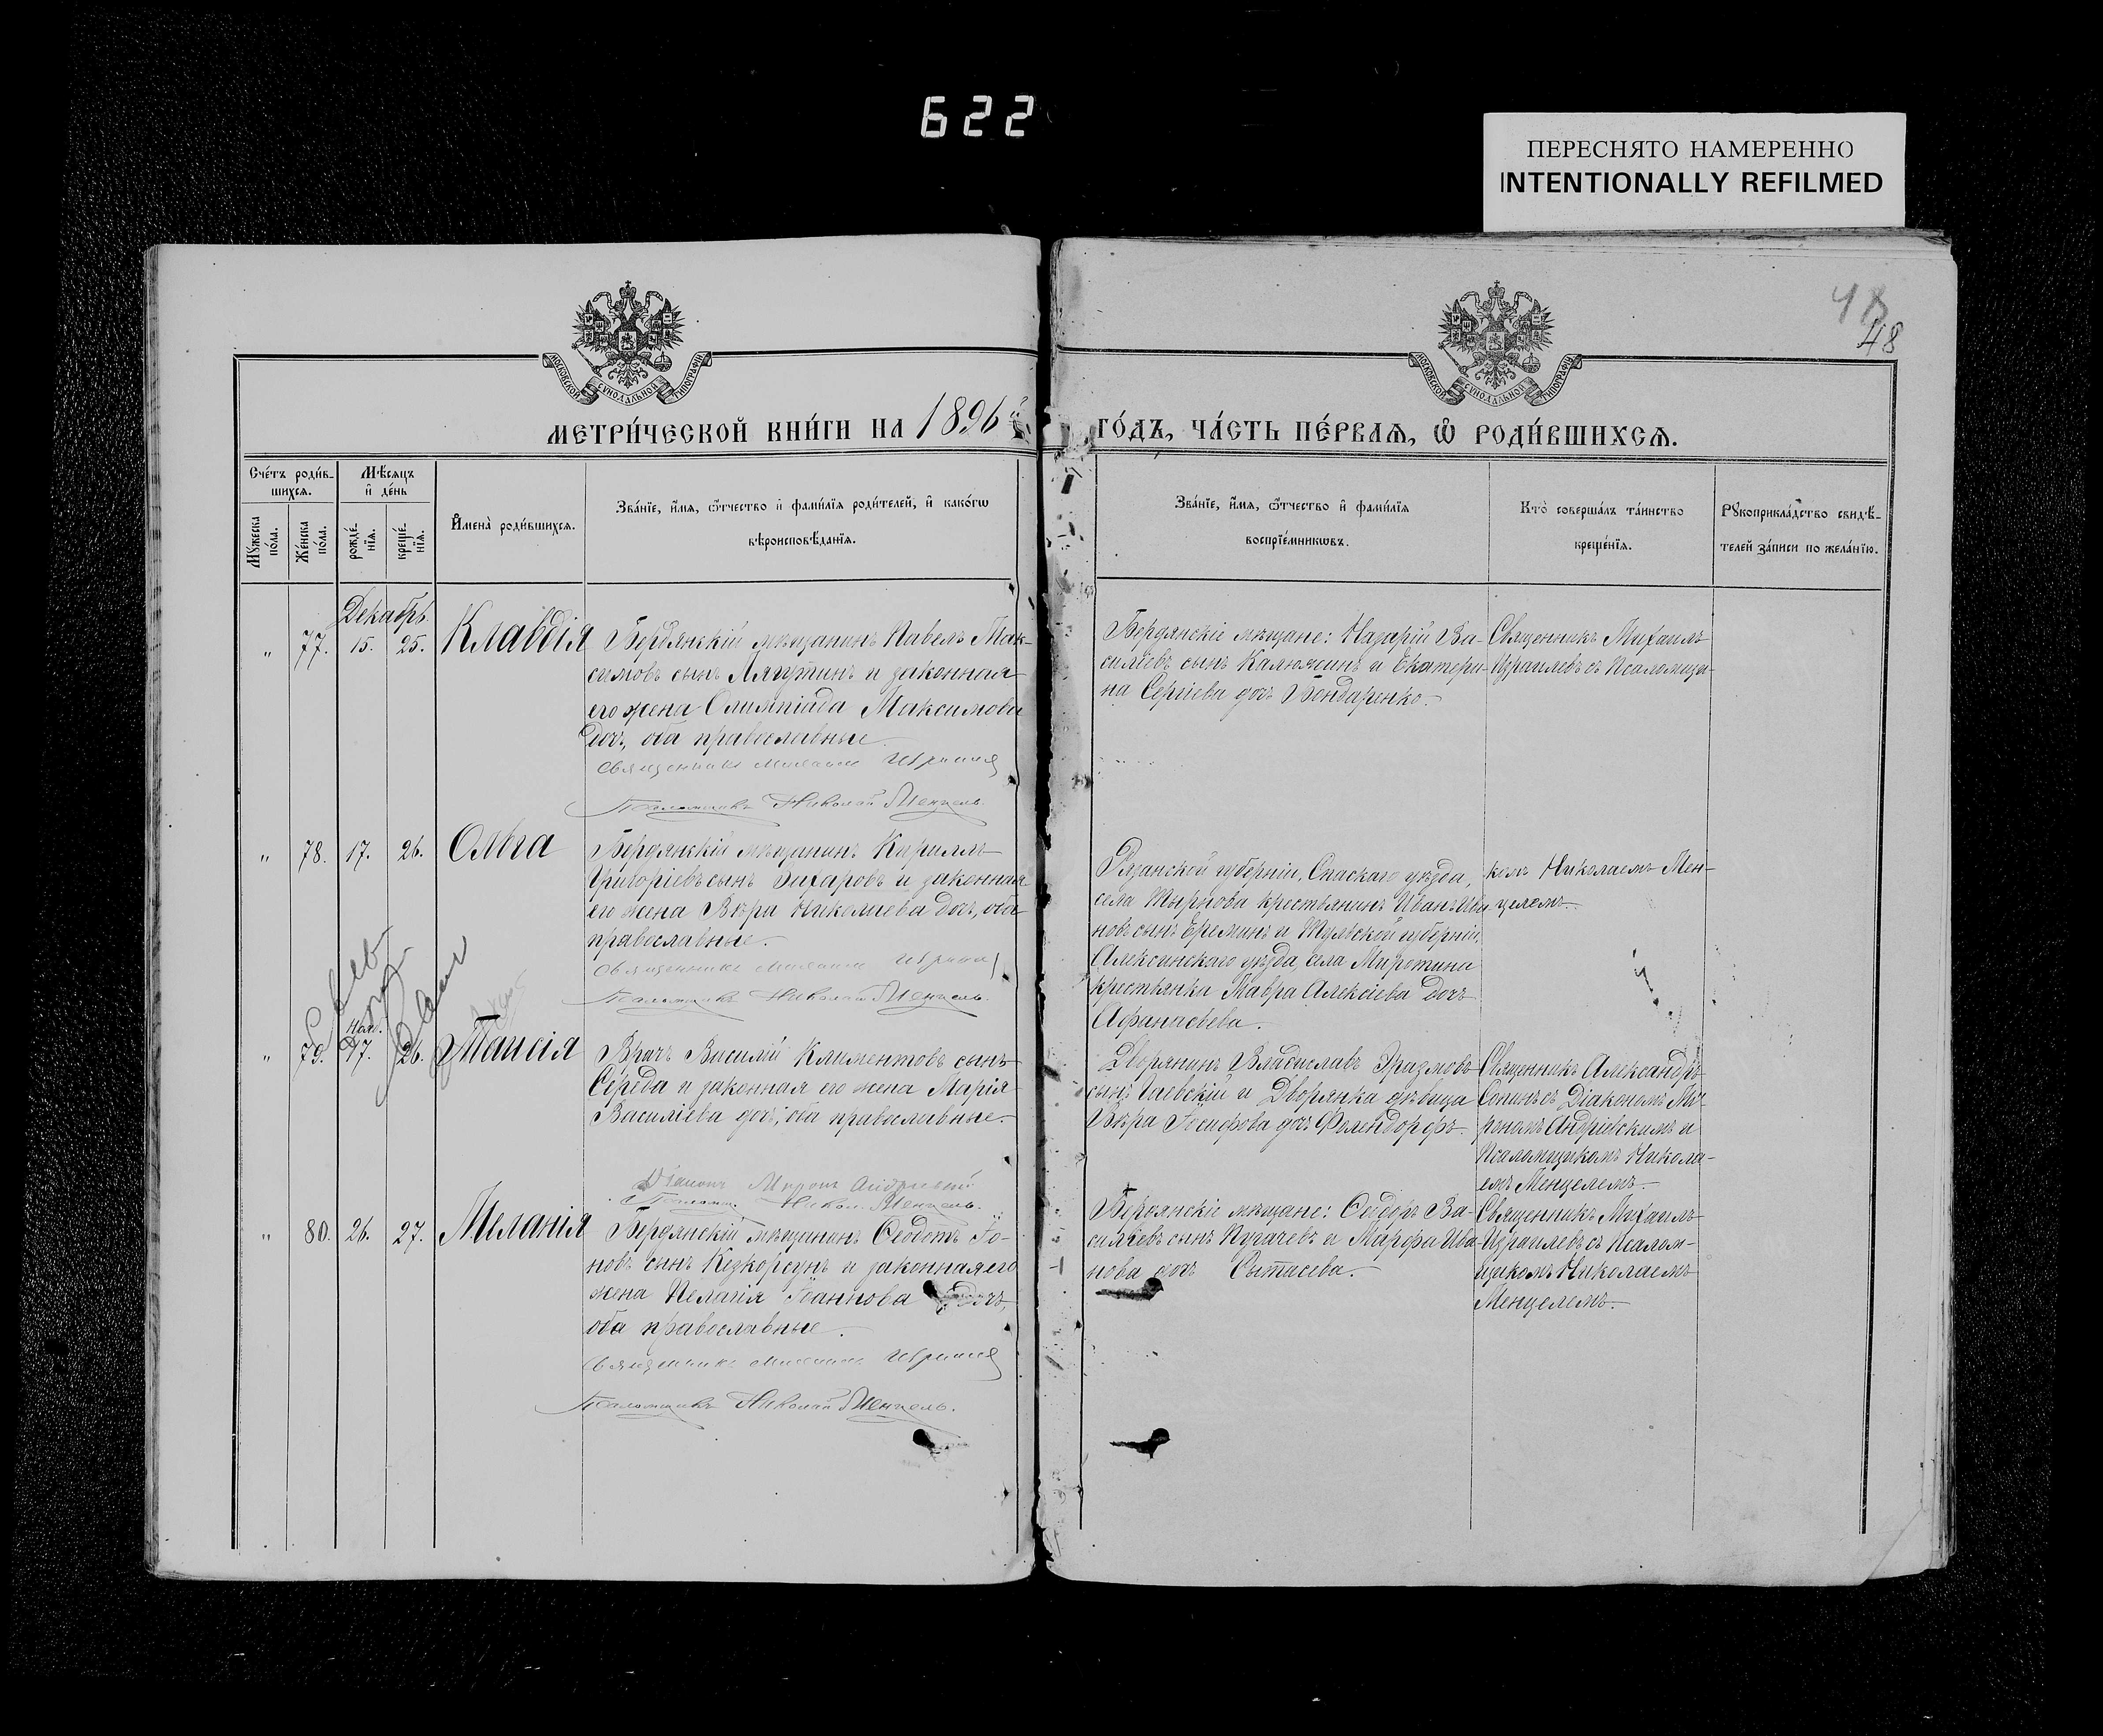 622
ПЕРЕСНЯТО НАМЕРЕННО
INTENTIONALLY REFILMED
48
МОСКОВСКОЙ СѴНОДАЛЬНОЙ ТИПОГРАФІИ
МОСКОВСКОЙ СѴНОДАЛЬНОЙ ТИПОГРАФІИ
МЕТРИ́ЧЕСКОЙ КНИ́ГИ НА 1896й ГО́ДЪ, ЧА́СТЬ ПЕ́РВАѦ, Ѽ РОДИ́ВШИХСѦ.
Сче́тъ роди́в-
шихсѧ.
Мѣ́сѧцъ
и҆ де́нь
Мꙋжеска
по́ла.
Же́нска
по́ла.
рожде́-
нїѧ.
креще́-
нїѧ.
И҆мена̀ роди́вшихсѧ.
Зва́нїе, и҆́мѧ, ѻ҆́тчество и҆ фами́лїѧ роди́телей, и҆ како́гѡ
вѣроисповѣ́данїѧ.
Зва́нїе, и҆́мѧ, ѻ҆́тчество и҆ фами́лїѧ
воспрїе́мникѡвъ.
Кто̀ соверша́лъ та́инство
креще́нїѧ.
Рꙋкоприкла́дство свидѣ́-
телей за́писи по жела́нїю.
Декабрь
" 77. 15. 25. Клавдія
Бердянскій мѣщанинъ Павелъ Мак-
симовъ сынъ Ляпутинъ и законная
его жена Олимпіада Максимова
дочь, оба православные.
Священникъ Михаилъ
Псаломщикъ Николай Менцель.
Бердянскіе мѣщане: Назарій Ва-
силіевъ сынъ Калюжинъ и Екатери-
на Сергіева дочь Бондаренко.
Священникъ Михаилъ
Израилевъ съ Псаломщи-
" 78. 17. 26. Ольга
Бердянскій мѣщанинъ Кириллъ
Григоріевъ сынъ Захаровъ и законная
его жена Вѣра Николаева дочь, оба
православные.
Священникъ Михаилъ
Псаломщикъ Николай Менцель.
Рязанской губерніи, Спаскаго уѣзда,
села Тырнова крестьянинъ Иванъ Ива-
новъ сынъ Ереминъ и Тульской губерніи,
Алексинскаго уѣзда, села Миротина
крестьянка Мавра Алексіева дочь
Афанасьева.
комъ Николаемъ Мен-
целемъ.
Нояб.
" 79. 17. 26. Таисія
Врачъ Василій Климентовъ сынъ
Середа и законная его жена Марія
Василіева дочь, оба православные.
Діаконъ Миронъ
Псаломщ. Никол. Менцель.
Дворянинъ Владиславъ Эразмовъ
сынъ Гаевскій и Дворянка дѣвица
Вѣра Іосифова дочь Фолендорфъ.
Священникъ Александръ
Сопинъ съ Діакономъ Ми-
рономъ Андріевскимъ и
Псаломщикомъ Никола-
емъ Менцелемъ.
" 80. 26. 27. Меланія
Бердянскій мѣщанинъ Ѳеодотъ Іо-
новъ сынъ Козкорсунъ и законная его
жена Пелагія Іоаннова дочь,
оба православные.
Священникъ Михаилъ
Псаломщикъ Николай Менцель.
Бердянскіе мѣщане: Ѳеодоръ Ва-
силіевъ сынъ Пугачевъ и Марфа Ива-
нова дочь Сытасева.
Священникъ Михаилъ
Израилевъ съ Псалом-
щикомъ Николаемъ
Менцелемъ.